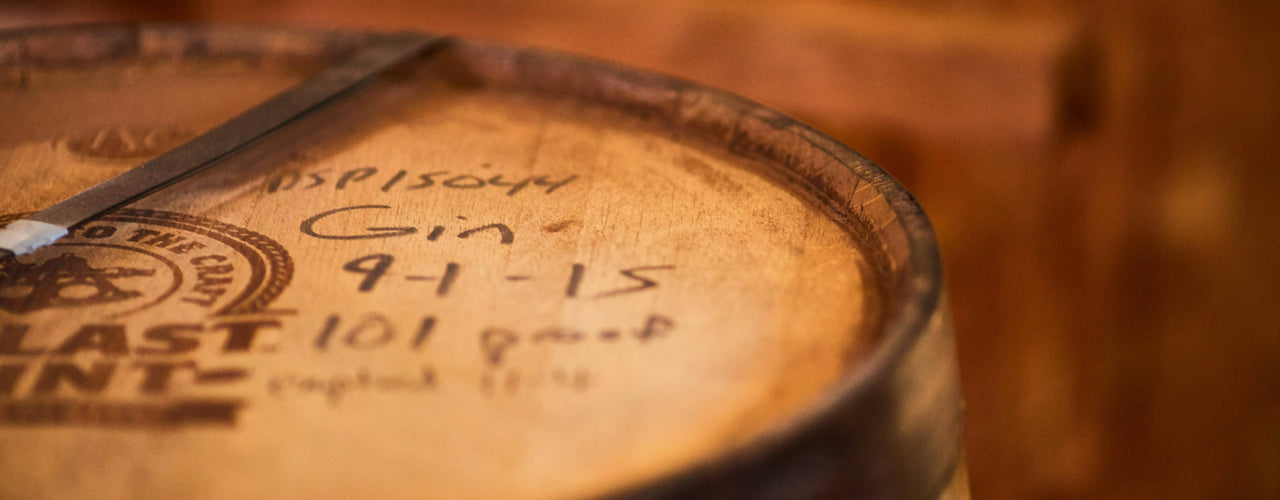 DSP15044
Gin
9-1-15
101 proof
TO THE CRAFT
LAST
INT